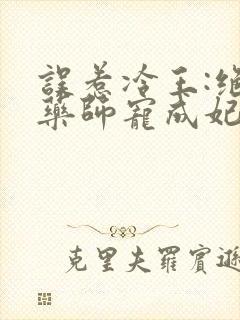 誤惹冷王:絕
藥師寵成妃
克里夫羅賓遜